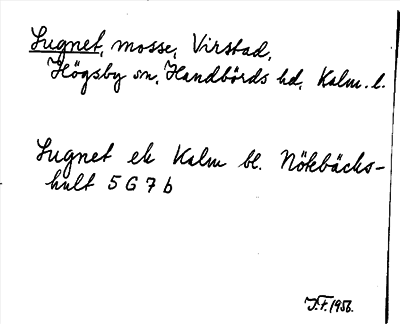 Lugnet, mosse, Virstad,
Högsby sn, Handbörds hd, Kalm. l.
Lugnet ek Kalm bl. Nötebäcks-
hult 5 G 7 b
J.F. 1956.